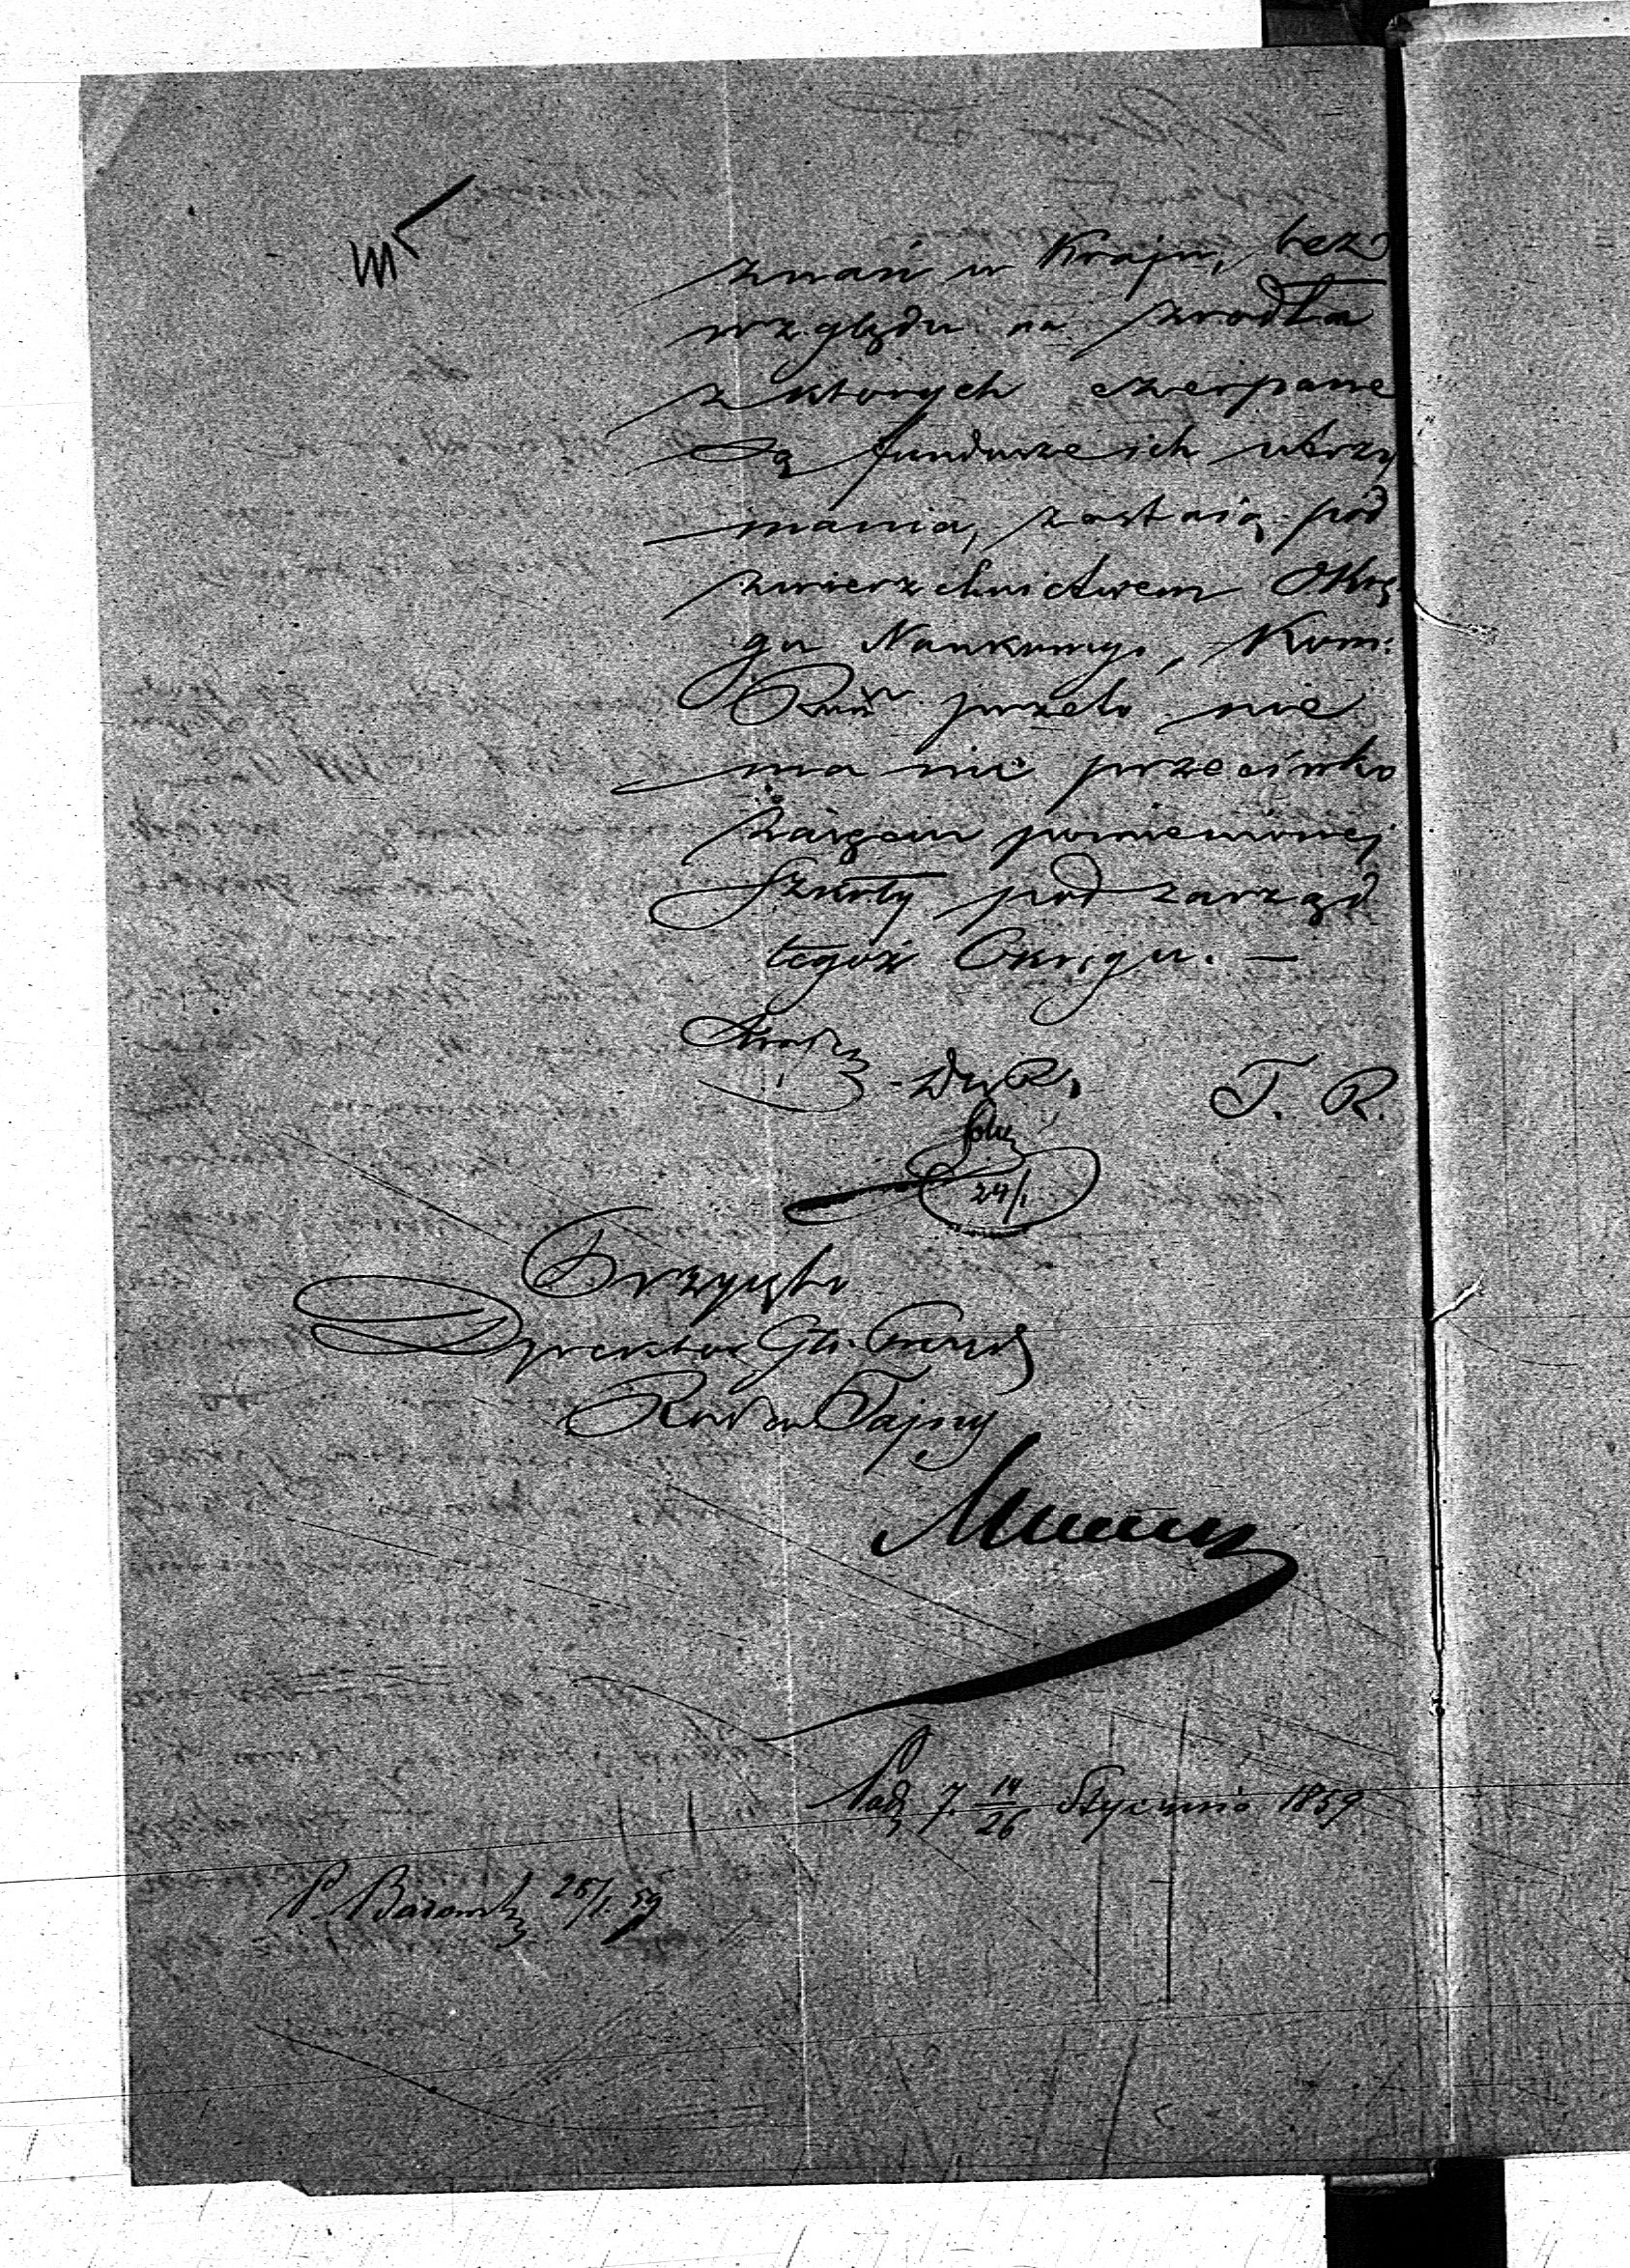 znań w Kraju, bez
względu na źrodła
z ktorych czerpane
są fundusze ich utrzy
mania, zostaią pod
zwierzchnictwem Okrę
gu Naukowego, Kom:
przeto nie
ma nic przeciwko
pomienionej
Szkoły pod zarząd
tegoż Okręgu. —
DyR,
T. R.
24/1
Przyięto
Dyrektor Gł. Prezyd
Radca Tajny
Nadz 7. 14/26 Stycznia 1859
P. 26/1. 59